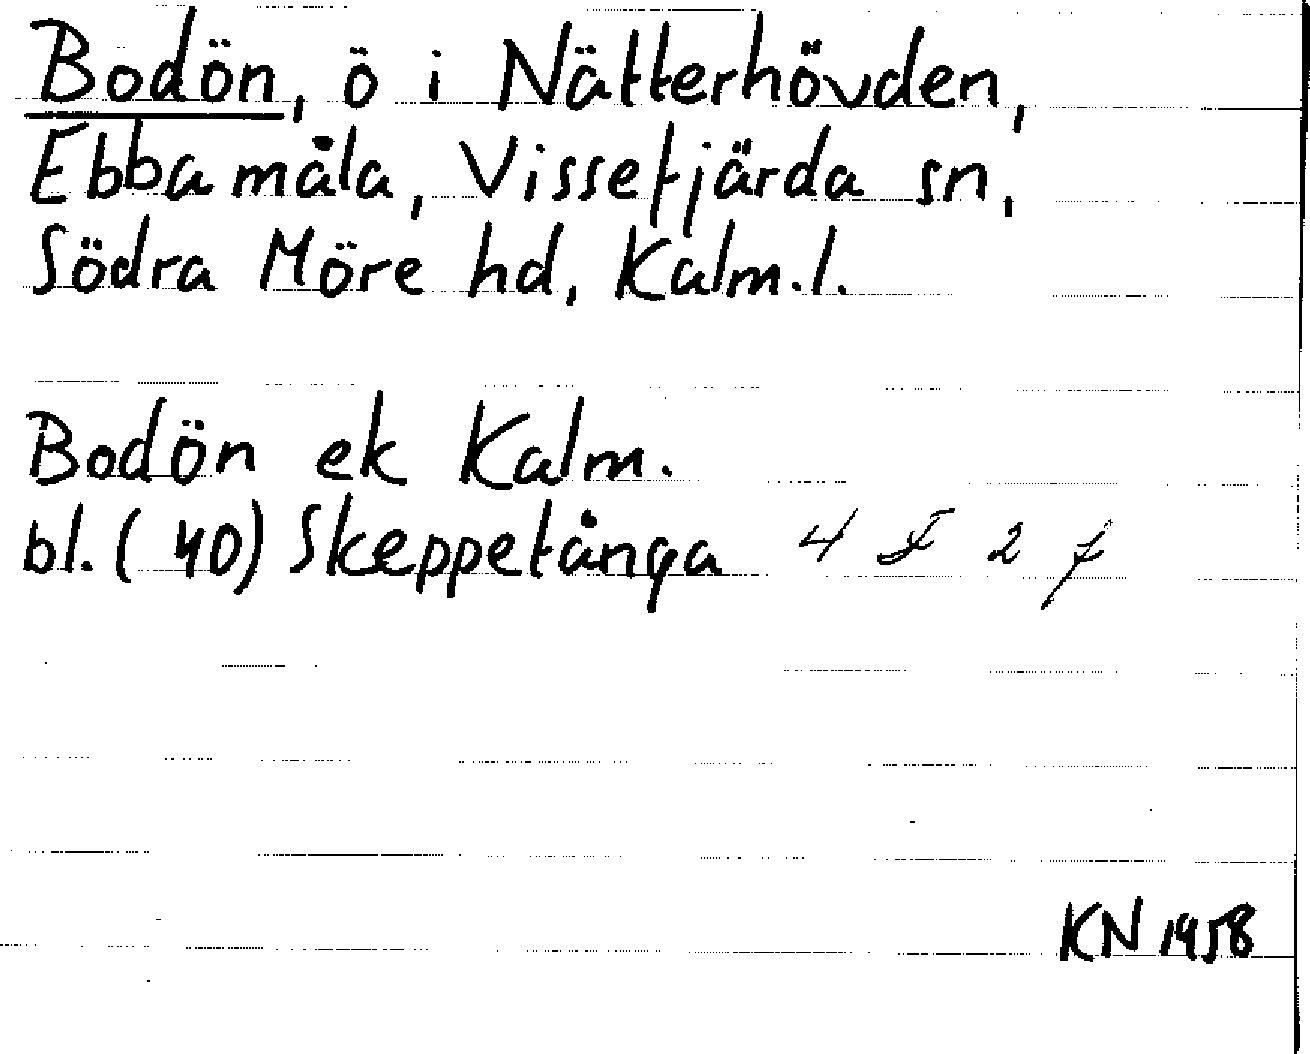 Bodön, ö i Nätterhövden,
Ebbamåla, Vissefjärda sn,
Södra Möre hd, Kalm.l.
Bodön ek Kalm.
bl. (40) Skeppetånga 4 F 2 f
KN 1958